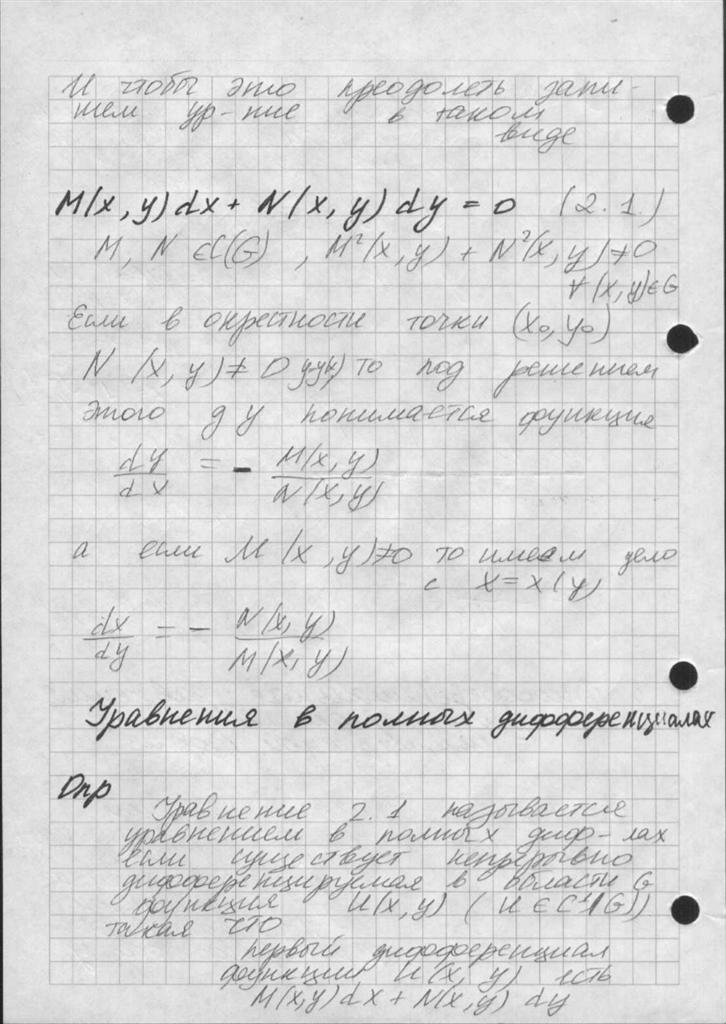 И чтобы это преодолеть запи-
шем ур-ние в таком
виде
M(x, y) dx + N(x, y) dy = 0 (2.1.)
M, N ∈ C(G) , M²(x, y) + N²(x, y) ≠ 0
∀(x, y) ∈ G
Если в окрестности точки (x₀, y₀)
N (x, y) ≠ 0 то под решением
этого д у понимается функция
dy/dx = - M(x, y)/N(x, y)
а если M (x, y) ≠ 0 то имеем дело
с x = x(y)
dx/dy = - N(x, y)/M(x, y)
Уравнения в полных дифференциалах
Опр
Уравнение 2.1 называется
уравнением в полных диф-лах
если существует непрерывно
дифференцируемая в области G
функция U(x, y) ( U ∈ C¹(G))
такая что
первый дифференциал
функции U(x, y) есть
M(x,y) dx + N(x, y) dy